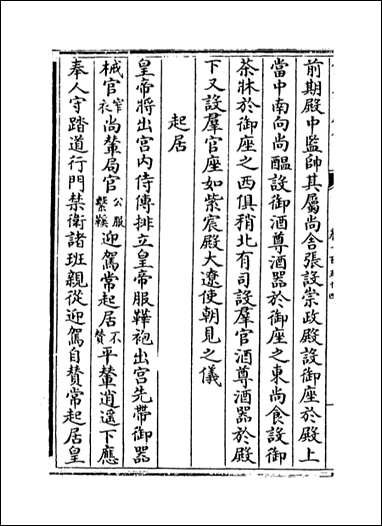 前期殿中監帥其屬尚舍張設崇政殿設御座於殿上
當中南向尚醞設御酒尊酒器於御座之東尚食設御
茶牀於御座之西俱稍北有司設羣官酒尊酒器於殿
下又設羣官座如紫宸殿大遼使朝見之儀
起居
皇帝將出宮内侍傳排立皇帝服鞾袍出宮先帶御器
械官窄衣尚輦局官公服繫鞵迎駕常起居不賛平輦逍遥下應
奉人守踏道行門禁衛諸班親從迎駕自賛常起居皇